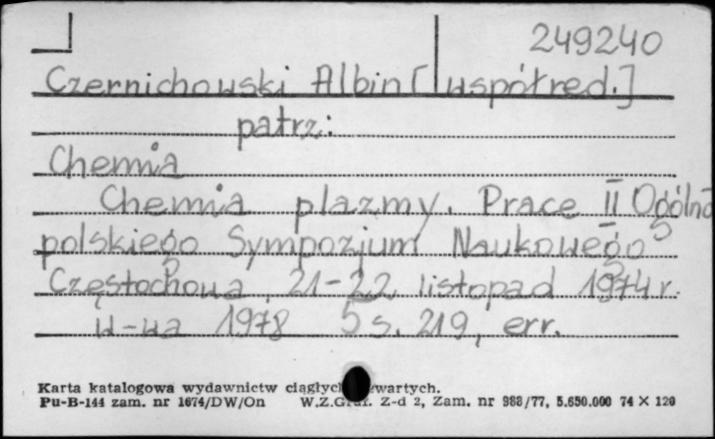 249240
Czernichowski Albin [współred.]
patrz:
Chemia
Chemia plazmy. Prace II Ogólno
polskiego Sympozjum Naukowego
Częstochowa, 21-22, listopad 1974 r.
W-wa 1978 5 s. 219, err.
Karta katalogowa wydawnictw ciągłych zwartych.
Pu-B-144 zam. nr 1674/DW/On W.Z.Graf. Z-d 2, Zam. nr 988/77, 5.650.000 74 X 120